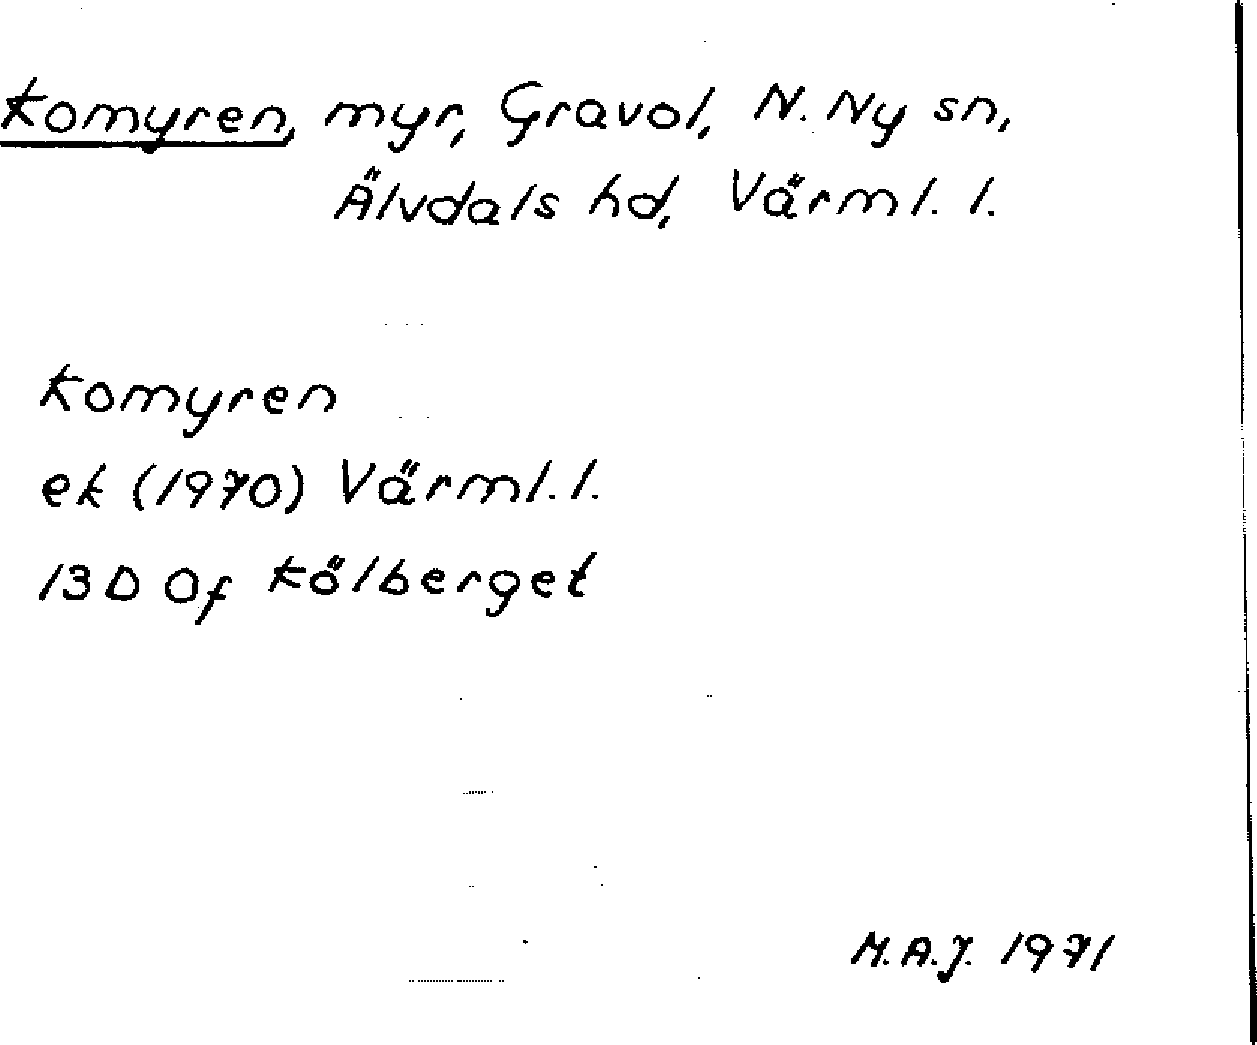 Komyren, myr, Gravol, N. Ny sn,
Älvdals hd, Värml. l.
Komyren
ek (1970) Värml. l.
13D 0f Kölberget
M.A.J. 1971